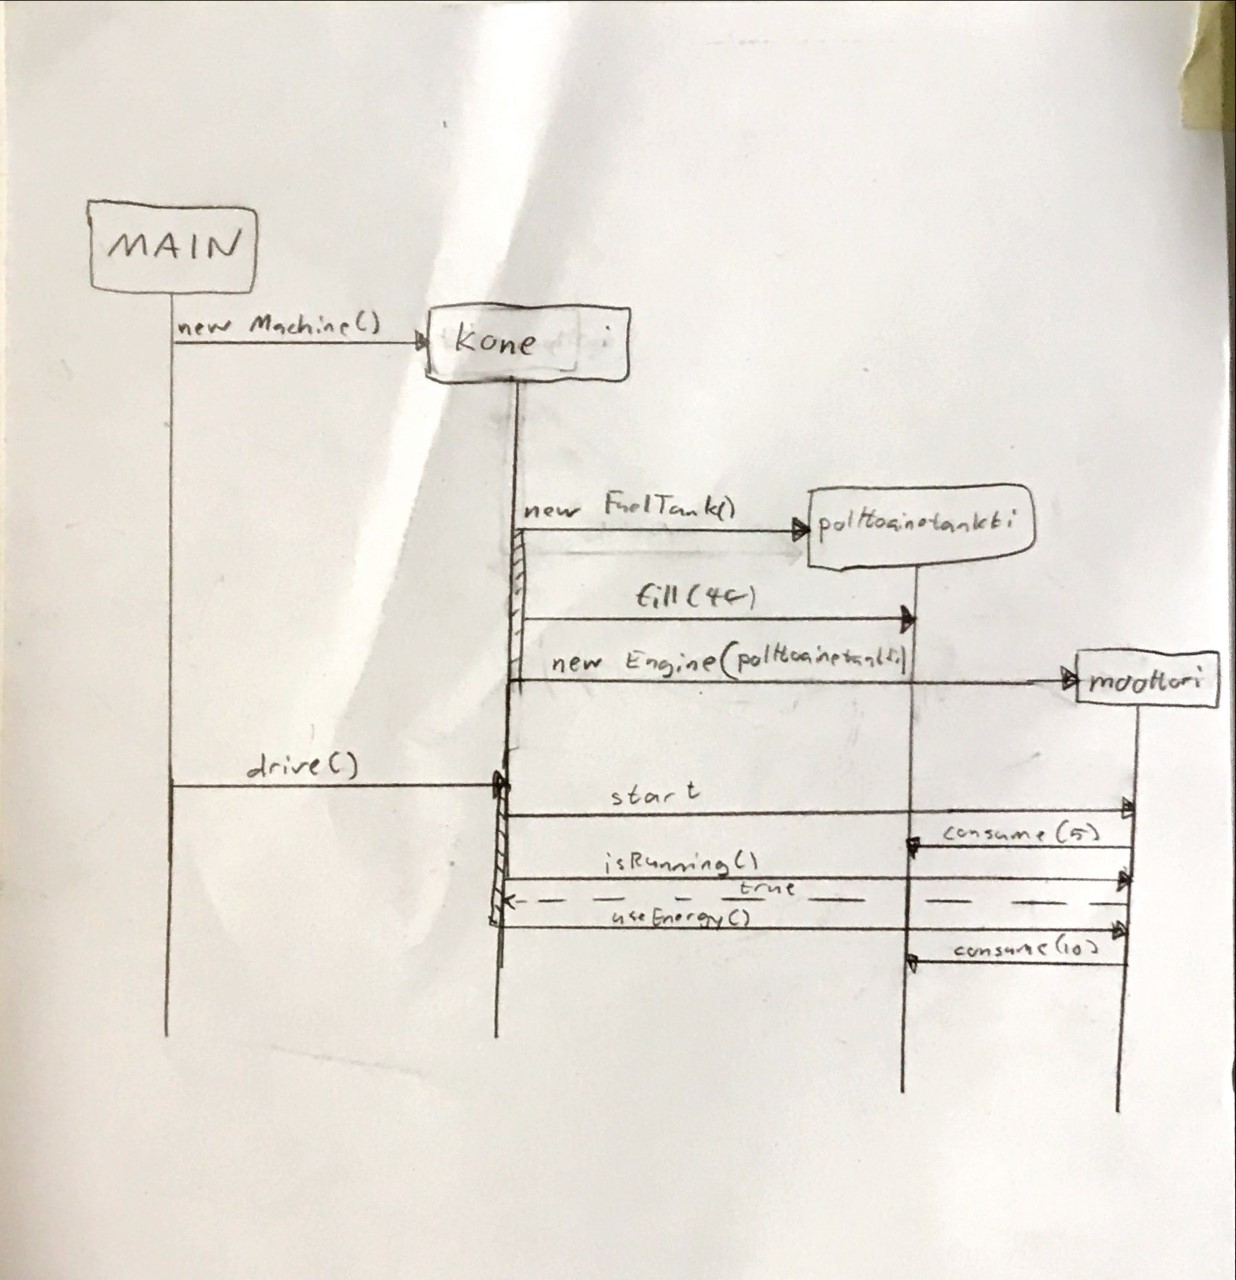 MAIN
new Machine()
Kone
new FuelTank()
polttoainetankki
fill(40)
new Engine(polttoainetankki)
moottori
drive()
start
consume(5)
isRunning()
true
useEnergy()
consume(10)